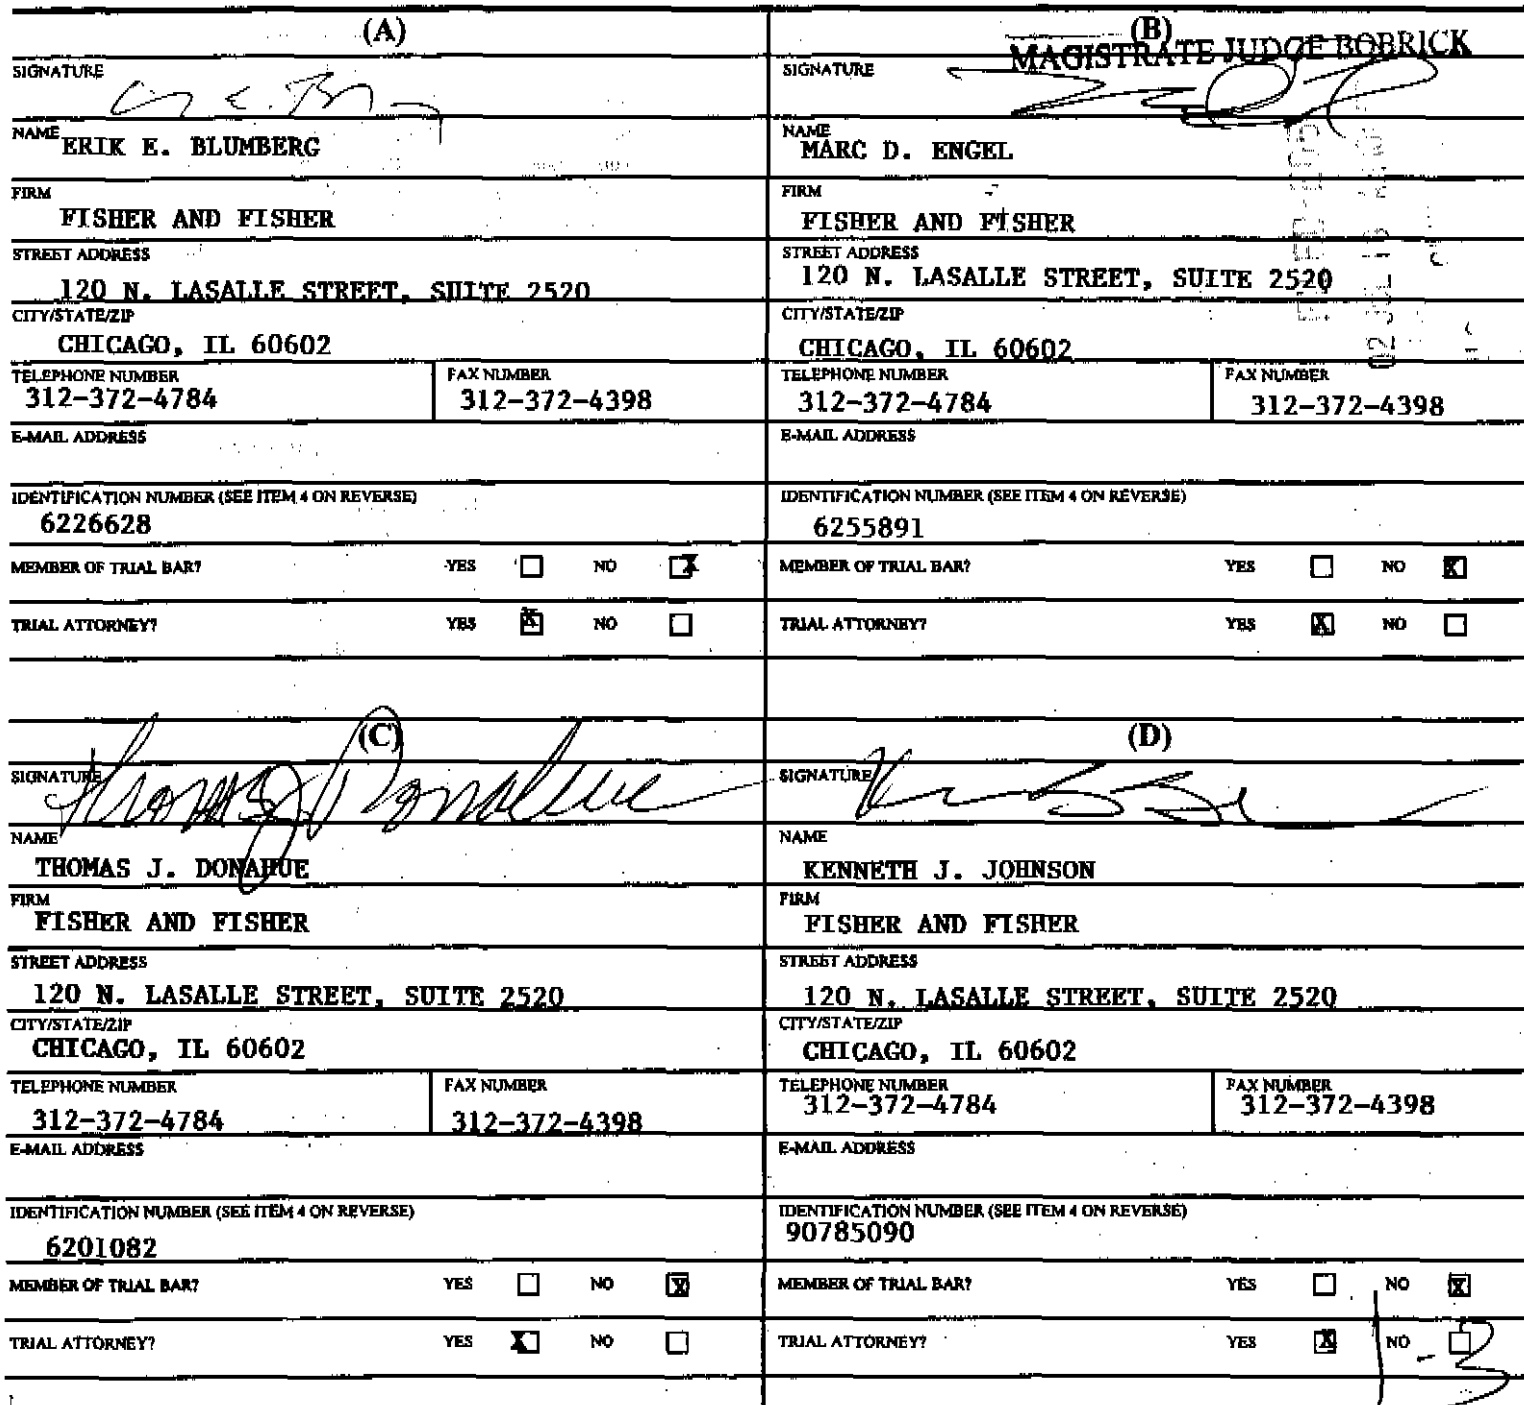 (A)
SIGNATURE
NAME ERIK E. BLUMBERG
FIRM
FISHER AND FISHER
STREET ADDRESS
120 N. LASALLE STREET, SUITE 2520
CITY/STATE/ZIP
CHICAGO, IL 60602
TELEPHONE NUMBER FAX NUMBER
312-372-4784 312-372-4398
E-MAIL ADDRESS
IDENTIFICATION NUMBER (SEE ITEM 4 ON REVERSE)
6226628
MEMBER OF TRIAL BAR? YES NO X
TRIAL ATTORNEY? YES X NO
(B)
MAGISTRATE JUDGE BOBRICK
SIGNATURE
NAME
MARC D. ENGEL
FIRM
FISHER AND FISHER
STREET ADDRESS
120 N. LASALLE STREET, SUITE 2520
CITY/STATE/ZIP
CHICAGO, IL 60602
TELEPHONE NUMBER FAX NUMBER
312-372-4784 312-372-4398
E-MAIL ADDRESS
IDENTIFICATION NUMBER (SEE ITEM 4 ON REVERSE)
6255891
MEMBER OF TRIAL BAR? YES NO X
TRIAL ATTORNEY? YES X NO
(C)
SIGNATURE Thomas J Donahue
NAME
THOMAS J. DONAHUE
FIRM
FISHER AND FISHER
STREET ADDRESS
120 N. LASALLE STREET, SUITE 2520
CITY/STATE/ZIP
CHICAGO, IL 60602
TELEPHONE NUMBER FAX NUMBER
312-372-4784 312-372-4398
E-MAIL ADDRESS
IDENTIFICATION NUMBER (SEE ITEM 4 ON REVERSE)
6201082
MEMBER OF TRIAL BAR? YES NO X
TRIAL ATTORNEY? YES X NO
(D)
SIGNATURE
NAME
KENNETH J. JOHNSON
FIRM
FISHER AND FISHER
STREET ADDRESS
120 N. LASALLE STREET, SUITE 2520
CITY/STATE/ZIP
CHICAGO, IL 60602
TELEPHONE NUMBER FAX NUMBER
312-372-4784 312-372-4398
E-MAIL ADDRESS
IDENTIFICATION NUMBER (SEE ITEM 4 ON REVERSE)
90785090
MEMBER OF TRIAL BAR? YES NO X
TRIAL ATTORNEY? YES X NO
1-3